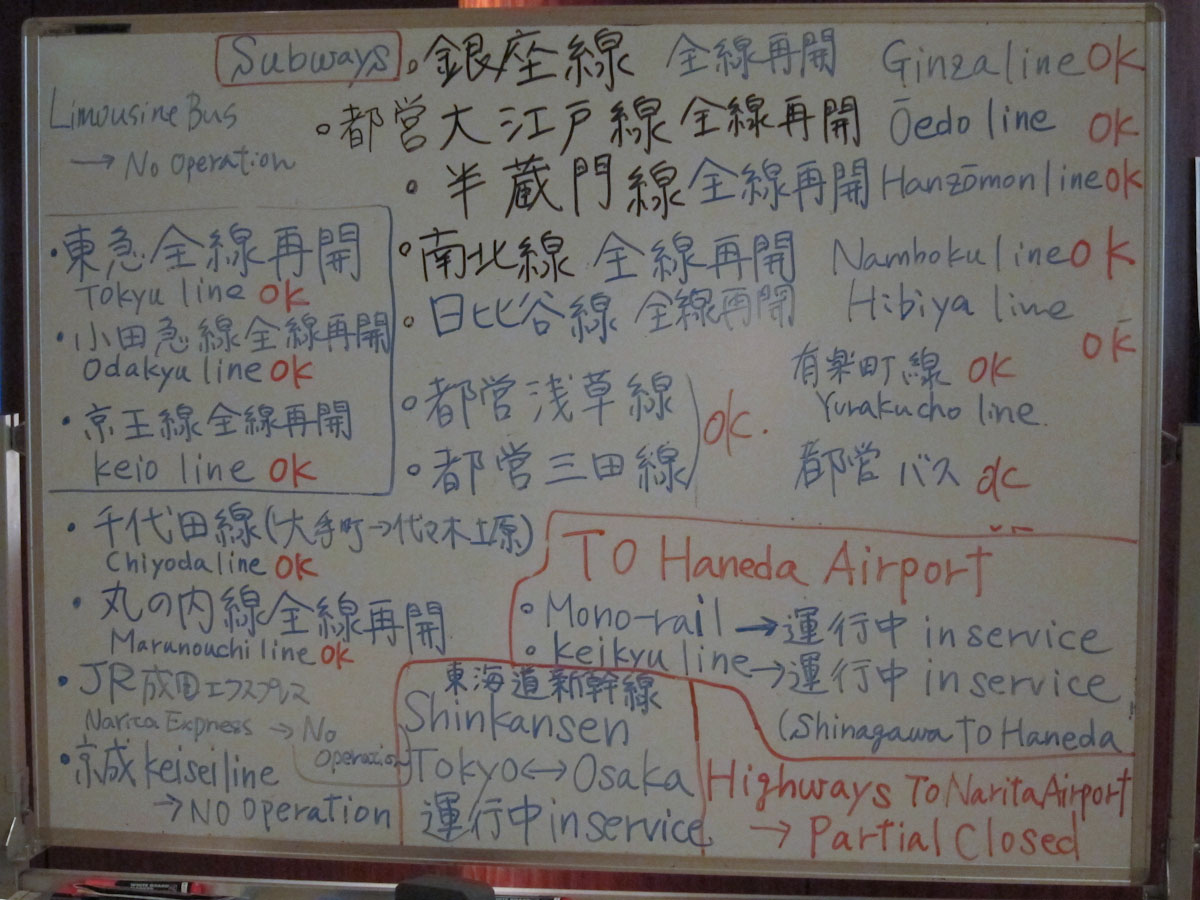 Subways
・銀座線 全線再開 Ginza line OK
・都営大江戸線 全線再開 Ōedo line OK
・半蔵門線 全線再開 Hanzōmon line OK
・南北線 全線再開 Namboku line OK
・日比谷線 全線再開 Hibiya line OK
・都営浅草線
・都営三田線
OK.
有楽町線 OK
Yurakucho line.
都営バス OK
Limousine Bus
→ No Operation
・東急全線再開
Tokyu line OK
・小田急線全線再開
Odakyu line OK
・京王線全線再開
Keio line OK
・千代田線(大手町→代々木上原)
Chiyoda line OK
・丸の内線全線再開
Marunouchi line OK
・JR成田エクスプレス
Narita Express → No Operation
・京成 Keisei line
→ No Operation
To Haneda Airport
・Mono-rail → 運行中 in service
・Keikyu line → 運行中 in service
(Shinagawa To Haneda
東海道新幹線
Shinkansen
Tokyo ↔ Osaka
運行中 in service
Highways To Narita Airport
→ Partial Closed